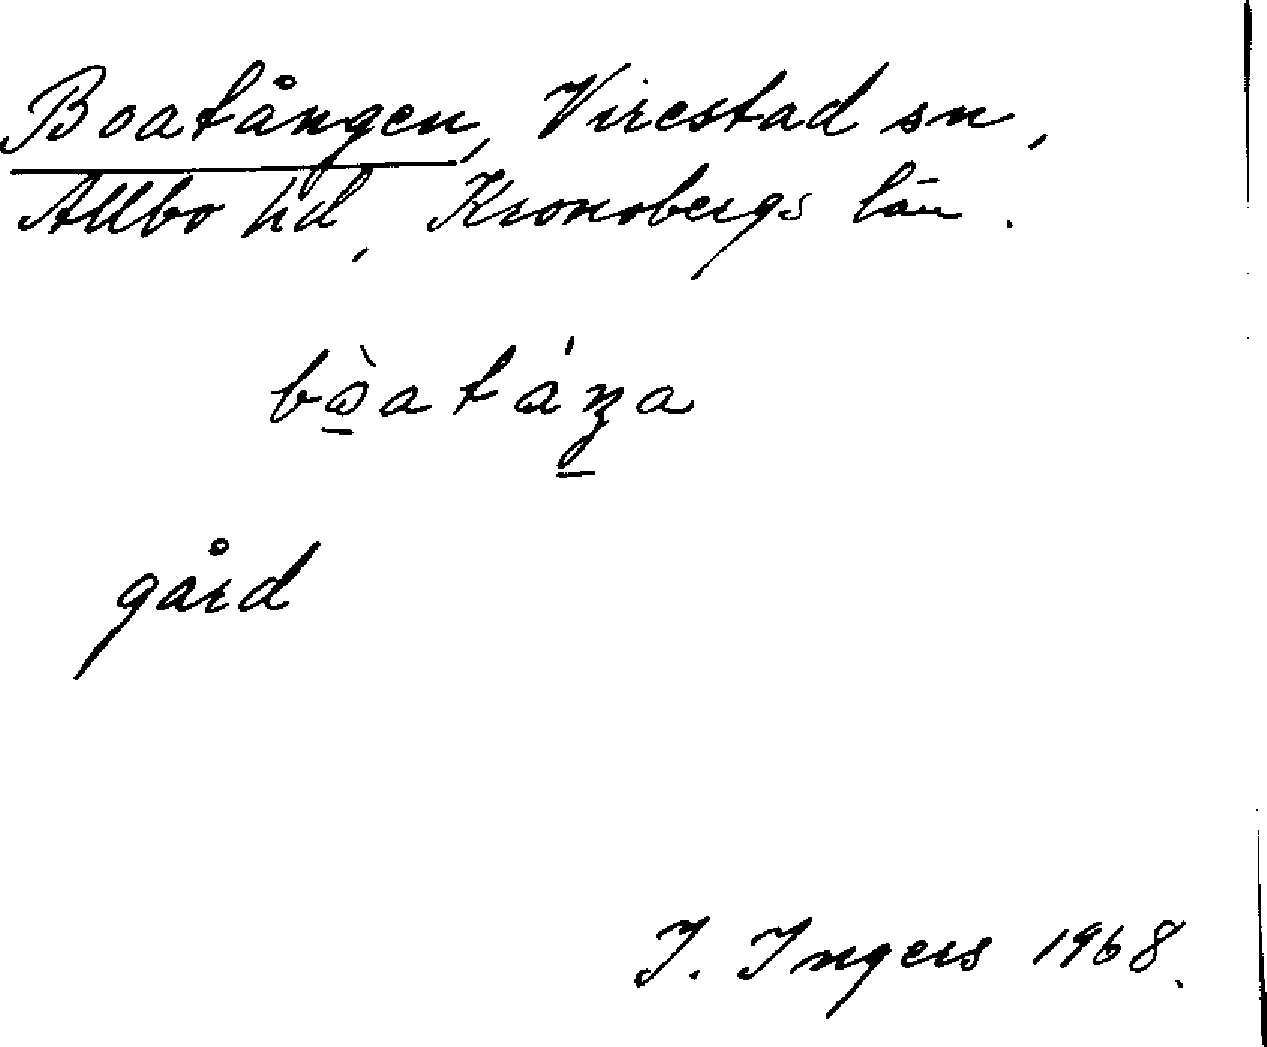 Boatången, Virestad sn,
Allbo hd, Kronobergs län.
bo̲̊̀atáŋ̲a
gård
I. Ingers 1968.